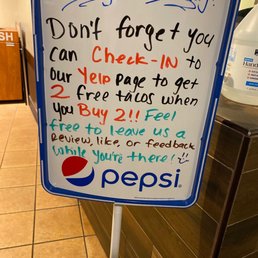 SH
Don't forget you
can Check-IN to
our Yelp page to get
2 free tacos when
you Buy 2!! Feel
free to leave us a
review, like, or feedback
while you're there!
pepsi